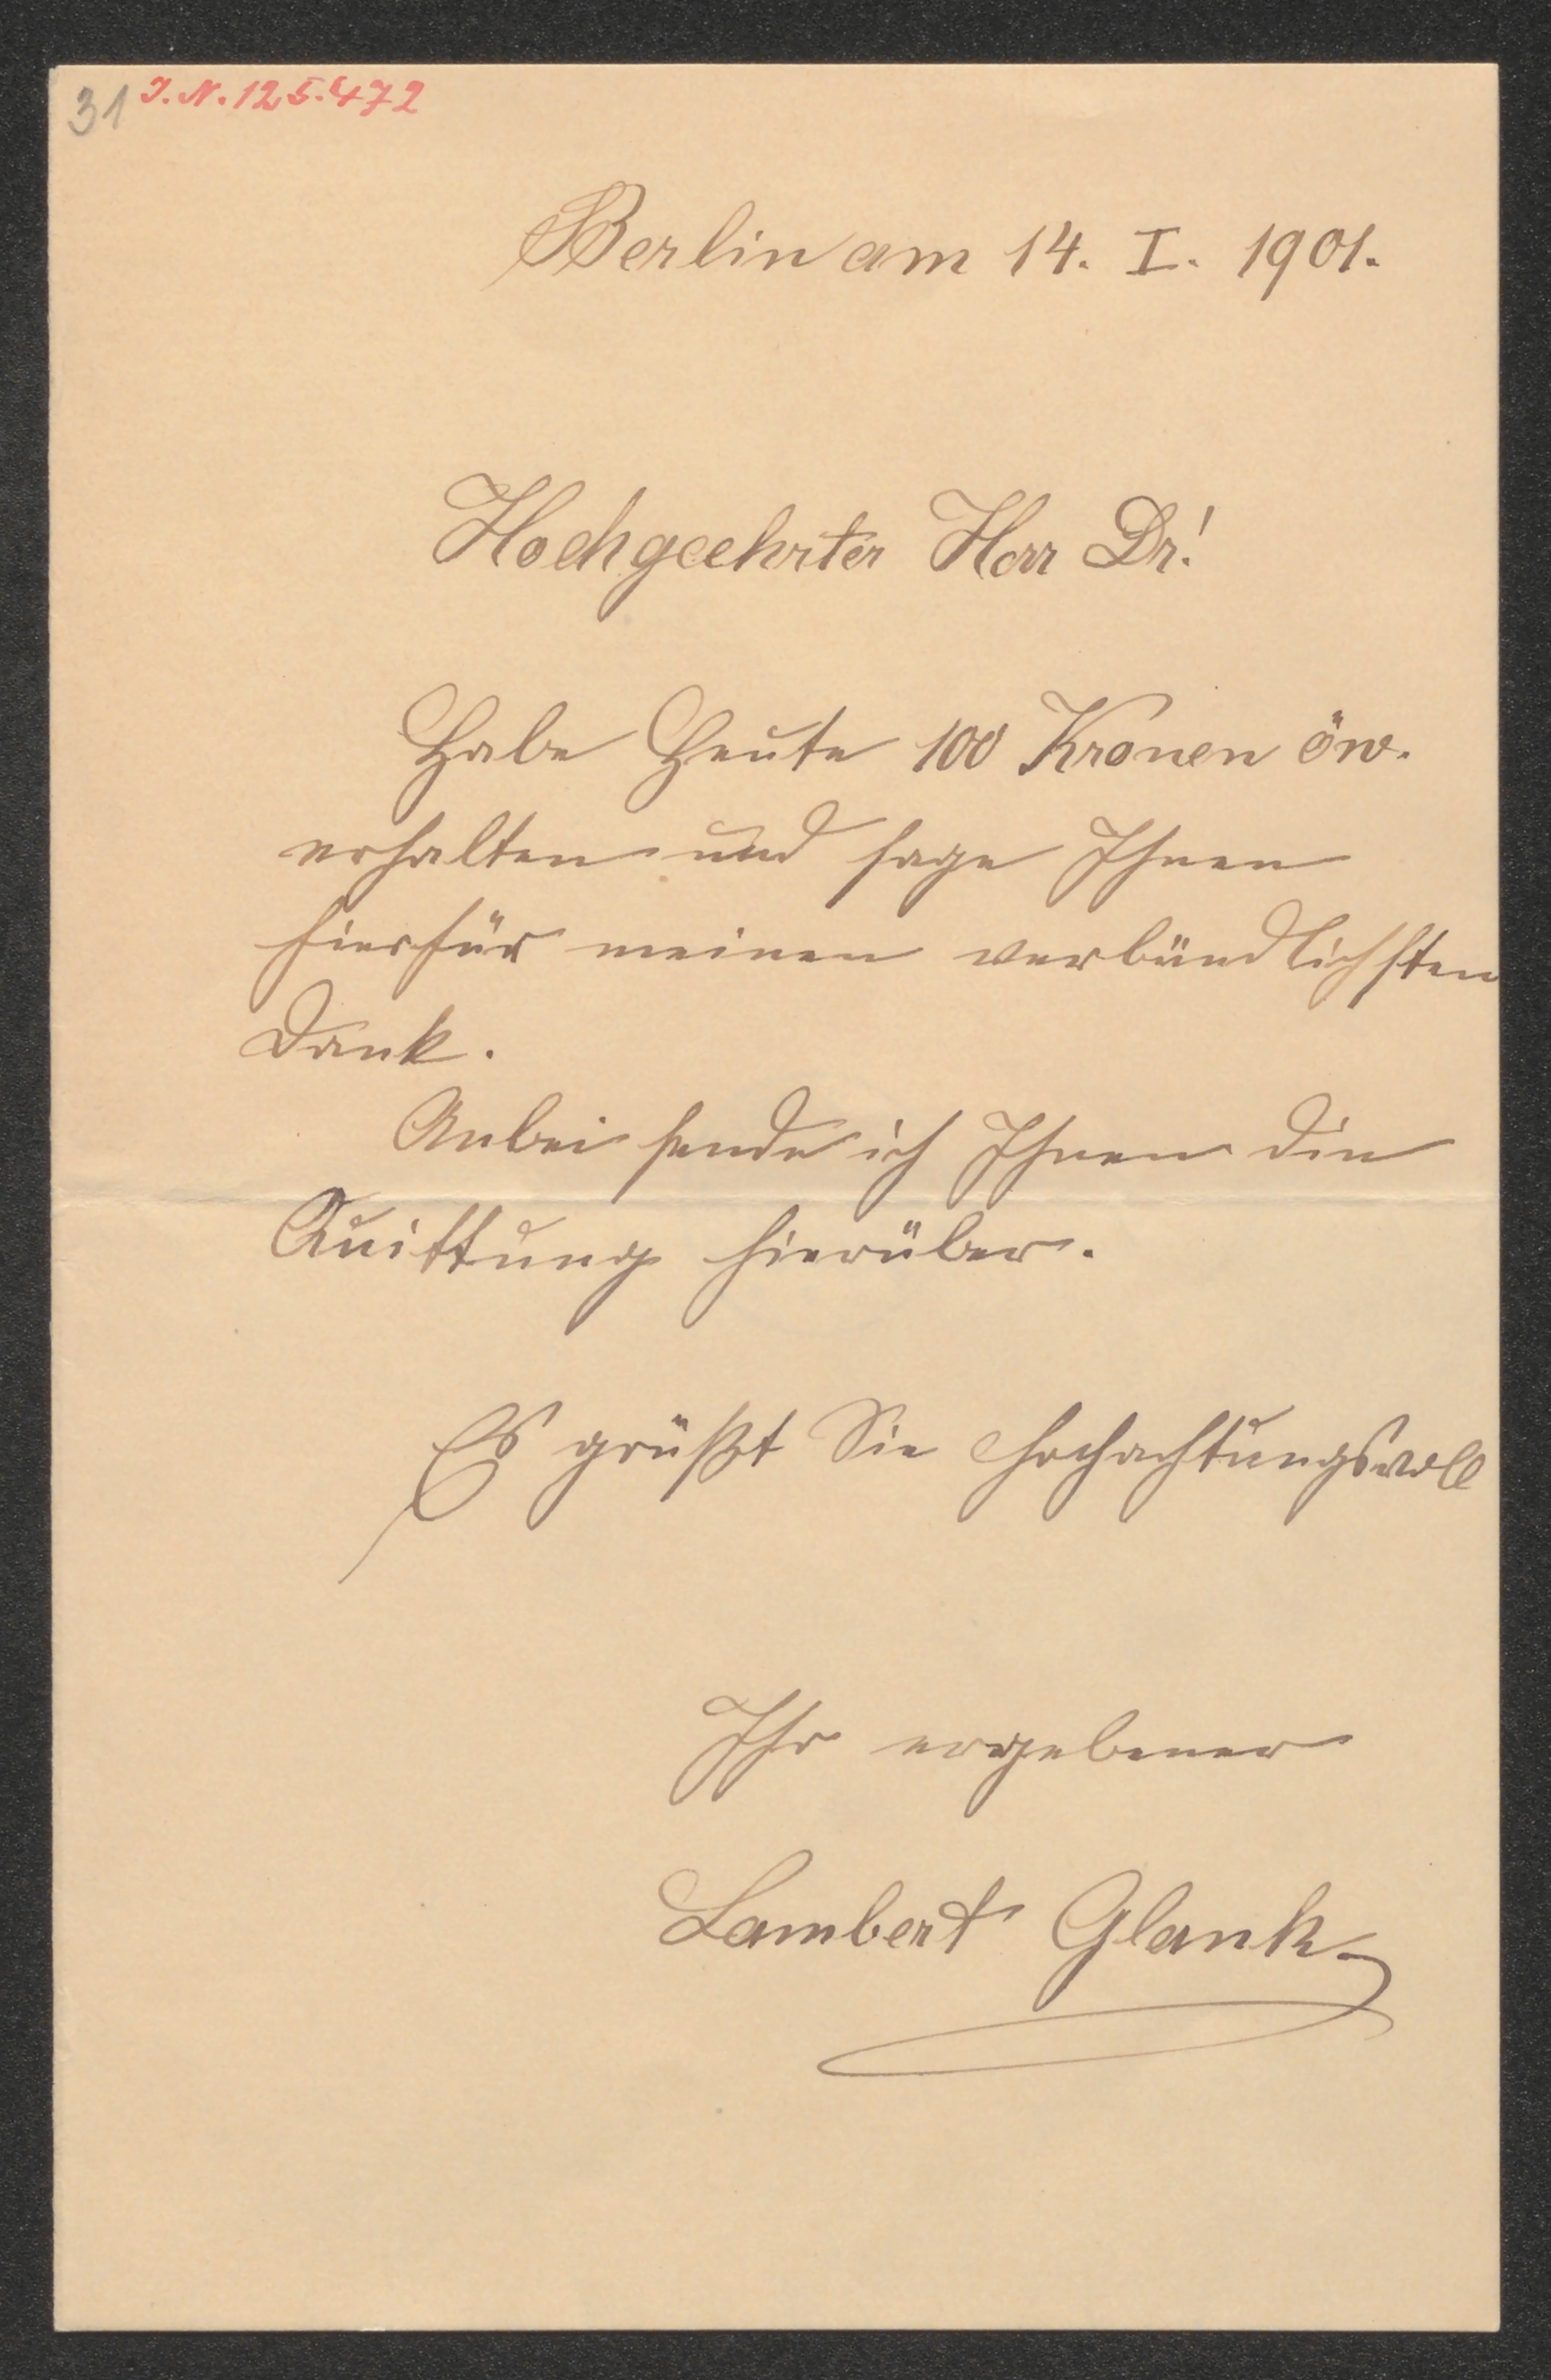 31 J.N. 125.472
Berlin am 14. I. 1901.
Hochgeehrter Herr Dr!
Habe Heute 100 Kronen öw.
erhalten und sage Ihnen
hierfür meinen verbündlichsten
Dank.
Anbei sende ich Ihnen die
Quittung hierüber.
Es grüßt Sie hochachtungsvoll
Ihr ergebener
Lambert Glank